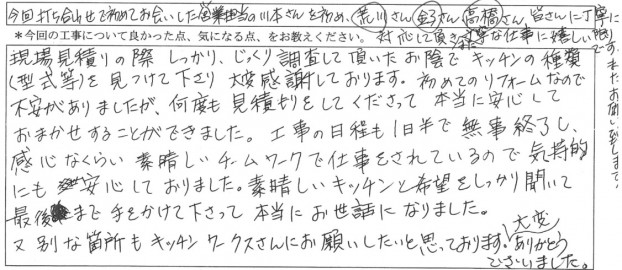 今回打ち合わせで初めてお会いした営業担当の川本さんを初め、荒川さん金子さん高橋さん、皆さんに丁寧に
＊今回の工事について良かった点、気になる点、をお教えください。対応して頂き丁寧な仕事に嬉しい限り
です。またお願い致します。
現場見積りの際しっかり、じっくり調査して頂いたお陰でキッチンの種類
(型式等)を見つけて下さり大変感謝しております。初めてのリフォームなので
不安がありましたが、何度も見積りをしてくださって本当に安心して
おまかせすることができました。工事の日程も1日半で無事終了し、
感心なくらい素晴しいチームワークで仕事をされているので気持的
にも安心しておりました。素晴しいキッチンと希望をしっかり聞いて
最後まで手をかけて下さって本当にお世話になりました。
又別な箇所もキッチンワークスさんにお願いしたいと思っております。大変
ありがとう
ございました。